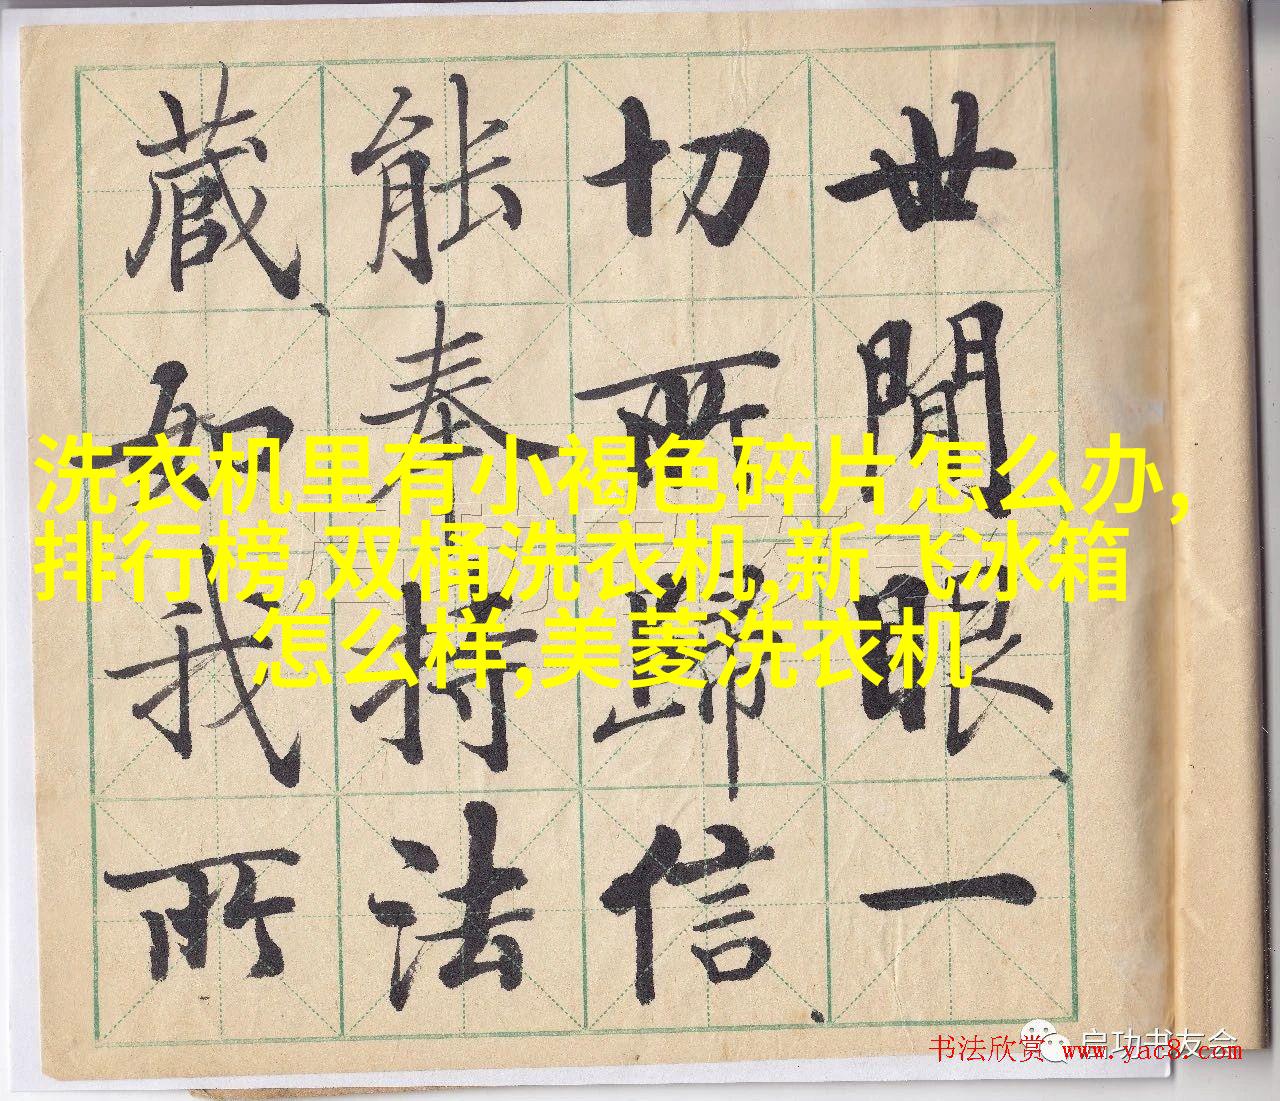 世間眼一
切所歸信
能奉持法
藏如我所
洗衣机里有小褐色碎片怎么办,
排行榜,双桶洗衣机,新飞冰箱
怎么样,美菱洗衣机
启功书友会
书法欣赏 www.yac8.com